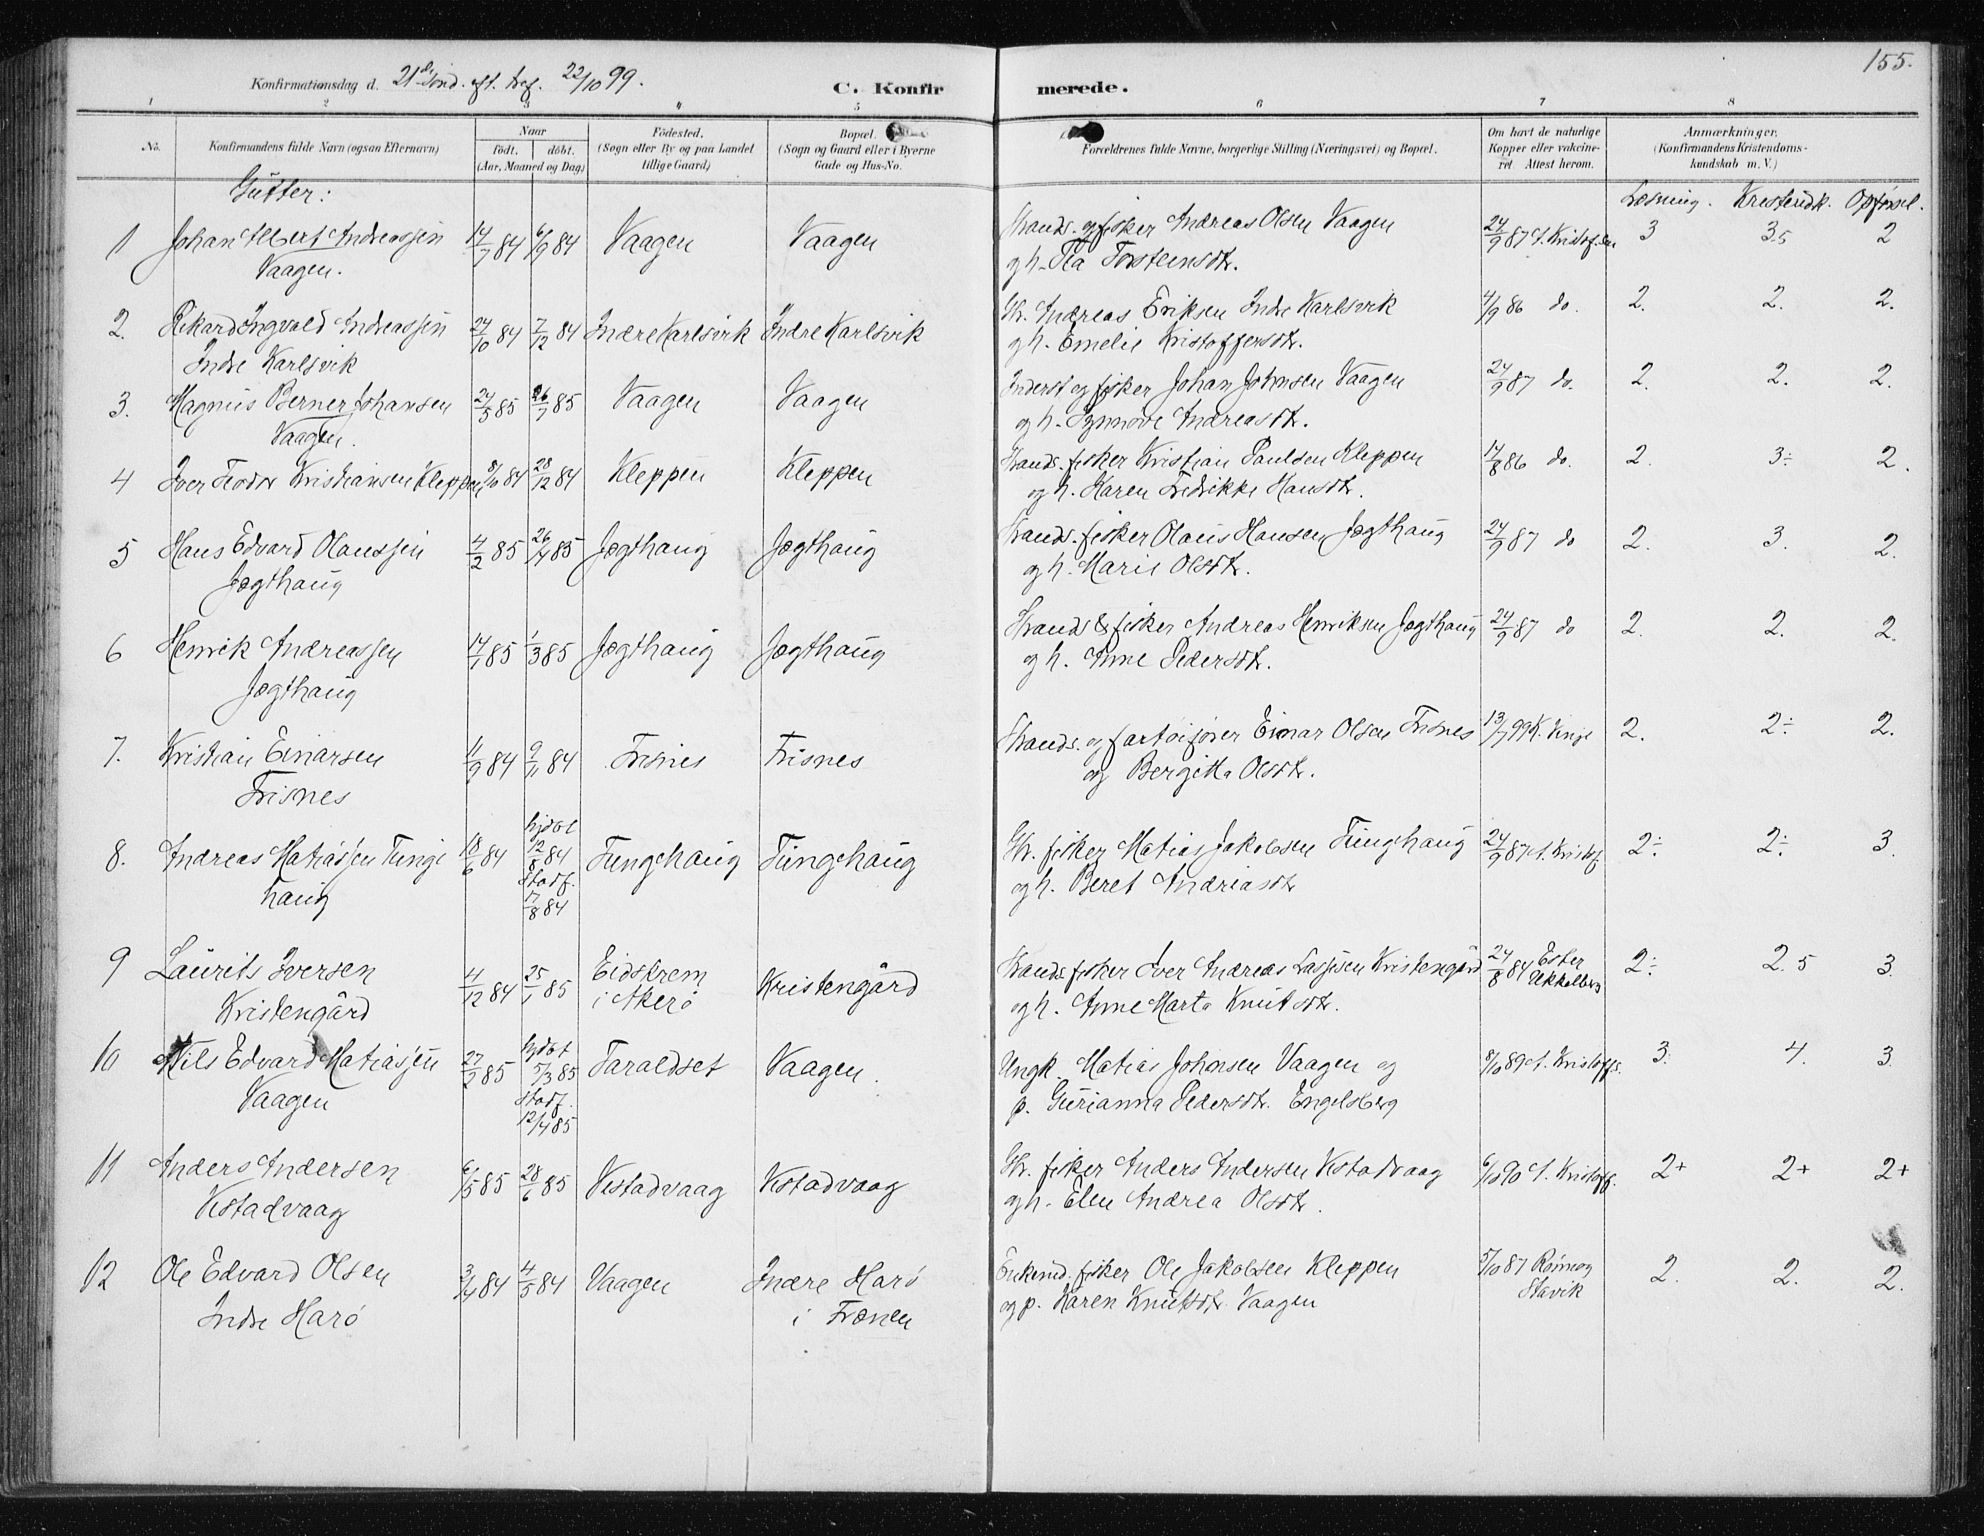 155.
Konfirmationsdag d. 21de Sønd. eft. tref. 22/10 99.
C. Konfirmerede.
1 2 3 4 5 6 7 8
No.
Konfirmandens fulde Navn (ogsaa Efternavn)
Naar
født. døbt.
(Aar, Maaned og Dag)
Fødested.
(Sogn eller By og paa Landet
tillige Gaard)
Bopæl.
(Sogn og Gaard eller i Byerne
Gade og Hus-No.
Forældrenes fulde Navne, borgerlige Stilling (Næringsvei) og Bopæl.
Om havt de naturlige
Kopper eller vakcine-
ret. Attest herom.
Anmærkninger.
(Konfirmandens Kristendoms-
kundskab m. V.)
Gutter:
Læsning. Kristendk. Opførsel.
1 Johan Albert Andreassen 14/7 84 6/9 84 Vaagen Vaagen Strands. og fisker Andreas Olsen Vaagen 24/9 87 A. Kristoffersen 3 3,5 2
Vaagen. og h. Ola Torsteinsdtr.
2. Rikard Ingvald Andreassen 24/10 84 7/12 84 Indre Karlsvik Indre Karlsvik Str. Andreas Eriksen Indre Karlsvik 4/9 86 do. 2. 2. 2.
Indre Karlsvik og h. Emelie Kristoffersdtr.
3. Magnus Berner Johansen 24/5 85 26/7 85 Vaagen Vaagen Inderst og fisker Johan Johnsen Vaagen 24/9 87 do. 2. 2. 2.
Vaagen. og h. Synnøve Andreasdtr.
4 Iver Teodor Kristiansen Kleppen 8/10 84 28/12 84 Kleppen Kleppen Strands. fisker Kristian Paulsen Kleppen 14/8 86 do. 2. 3÷ 2.
og h. Karen Fredrikke Hansdtr.
5 Hans Edvard Olaussen 4/2 85 26/4 85 Jægthaug Jægthaug Strands. fisker Olaus Hansen Jægthaug 24/9 87 do 2. 3. 2.
Jægthaug og h. Marie Olsdtr.
6 Henrik Andreassen 14/1 85 1/3 85 Jægthaug Jægthaug Strands & fisker Andreas Henriksen Jægthaug 24/9 87 do 2. 2. 2.
Jægthaug og h. Anne Pedersdtr.
7. Kristian Einarsen 11/9 84 9/11 84 Trisnes Trisnes Strands. og fartøifører Einar Olsen Trisnes 13/7 99 K. Vinje 2. 2÷ 2.
Trisnes og Bergitta Olsdtr.
8. Andreas Matiassen Tunge 18/6 84 hjdøbt 12/8 84 Tungehaug Tungehaug Str. fisker Matias Jakobsen Tunghaug 24/9 87 A. Kristof. 2÷ 2÷ 3.
haug Stadf. 17/8 84 og h. Beret Andreasdtr
9 Laurits Iversen 4/12 84 25/1 85 Eidskrem Kristengård Strands. fisker Iver Andreas Lassesen Kristengård 24/8 84 Ester 2÷ 2.5 3.
Kristengård i Akerø og h. Anne Marta Knutsdtr.
10 Nils Edvard Matiassen 27/2 85 hjdøbt 5/3 85 Taraldset Vaagen. Ungk. Matias Johnsen Vaagen og 8/10 89 A. Kristoffs. 3. 4. 3.
Vaagen Stadf. 12/4 85 p. Gurianna Pedersdtr. Engelsberg
11 Anders Andersen 6/5 85 28/6 85 Vestadvaag Vestadvaag Str. fisker Anders Andersen Vestadvaag 6/10 90 A. Kristoff. 2+ 2+ 2+
Vestadvaag og h. Elen Andrea Olsdtr.
12 Ole Edvard Olsen 3/4 84 4/5 84 Vaagen Indre Harø Enkemd. fisker Ole Jakobsen Kleppen 5/10 87 2. 2. 2.
Indre Harø i Frænen og p. Karen Knutsdtr. Vaagen Stavik